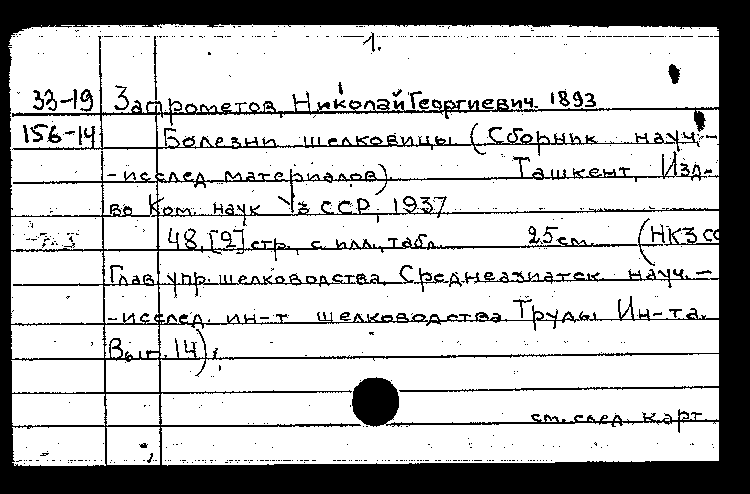 1.
33-19 Запрометов, Николай Георгиевич 1893
156-14 Болезни шелковицы (Сборник науч.-
-исслед. материалов). Ташкент, Изд-
во Ком. наук УзССР, 1937
48, [2] стр., с илл., табл. 25 см. (НКЗ СС
Глав. упр. шелководства. Среднеазиатск. науч.-
-исслед. ин-т шелководства. Труды Ин-та.
Вып. 14);
см. след. карт.